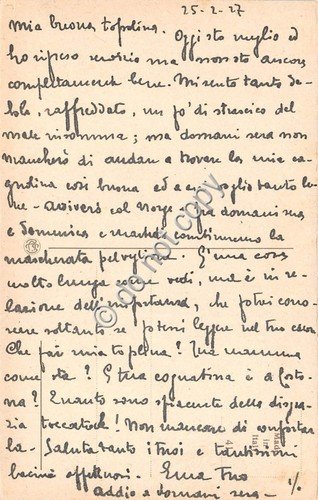 25-2-27
Mia buona topolina. Oggi sto meglio ed
ho ripreso servizio ma non sto ancora
completamente bene. Mi sento tanto de-
bole, raffreddato, un po' di strascico del
male insomma; ma domani sera non
mancherò di andare a trovare la mia
così buona ed a cui voglio tanto be-
ne - arriverò col
e domenica e martedì combineremo la
mascherata pel veglione. È una cosa
molto lunga come vedi, ma è in re-
lazione dell'importanza, che potrai cono-
scere soltanto se potrai leggere nel tuo cuore.
Che fai mia topolina? Tua mamma
come sta? E tua cognatina è a Corto-
na? Quanto sono spiacente della disgra-
zia toccatale! Non mancare di confortar-
la - Saluta tanto i tuoi e tantissimi
bacini affettuosi. Tuo
addio a domani sera -
do not copy
Made
in
Italy